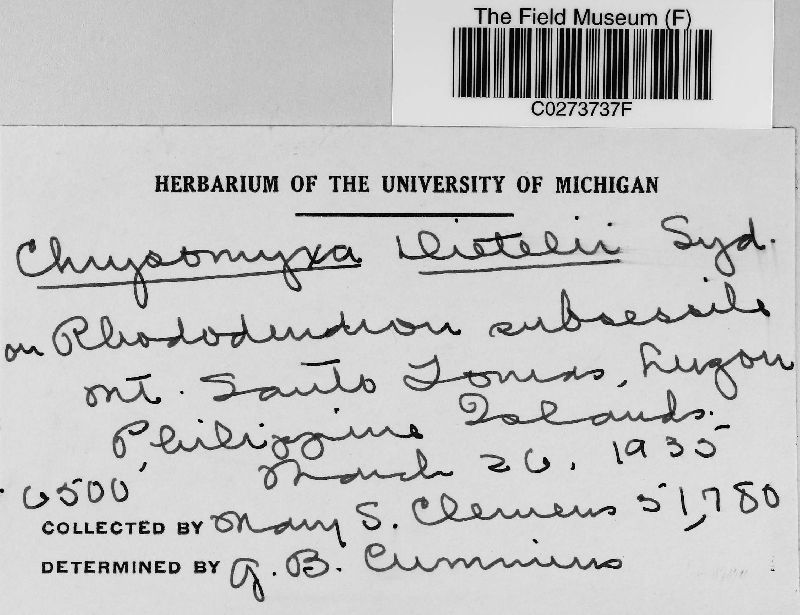 The Field Museum (F)
C0273737F
HERBARIUM OF THE UNIVERSITY OF MICHIGAN
Chrysomyxa Dietelii Syd.
on Rhododendron subsessile
Mt. Santo Tomas, Luzon
Philippine Islands.
6500' March 26, 1935
COLLECTED BY Mary S. Clemens 51,780
DETERMINED BY G. B. Cummins